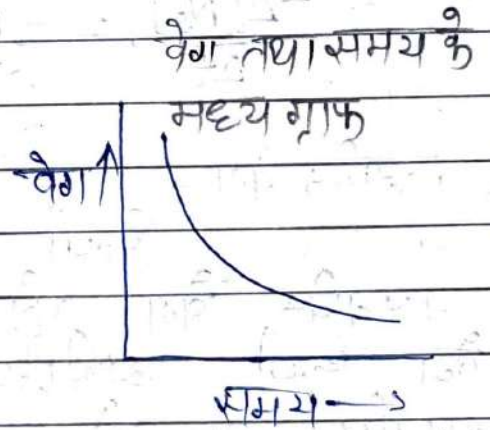 वेग तथा समय के
मध्य ग्राफ
वेग ↑
समय →